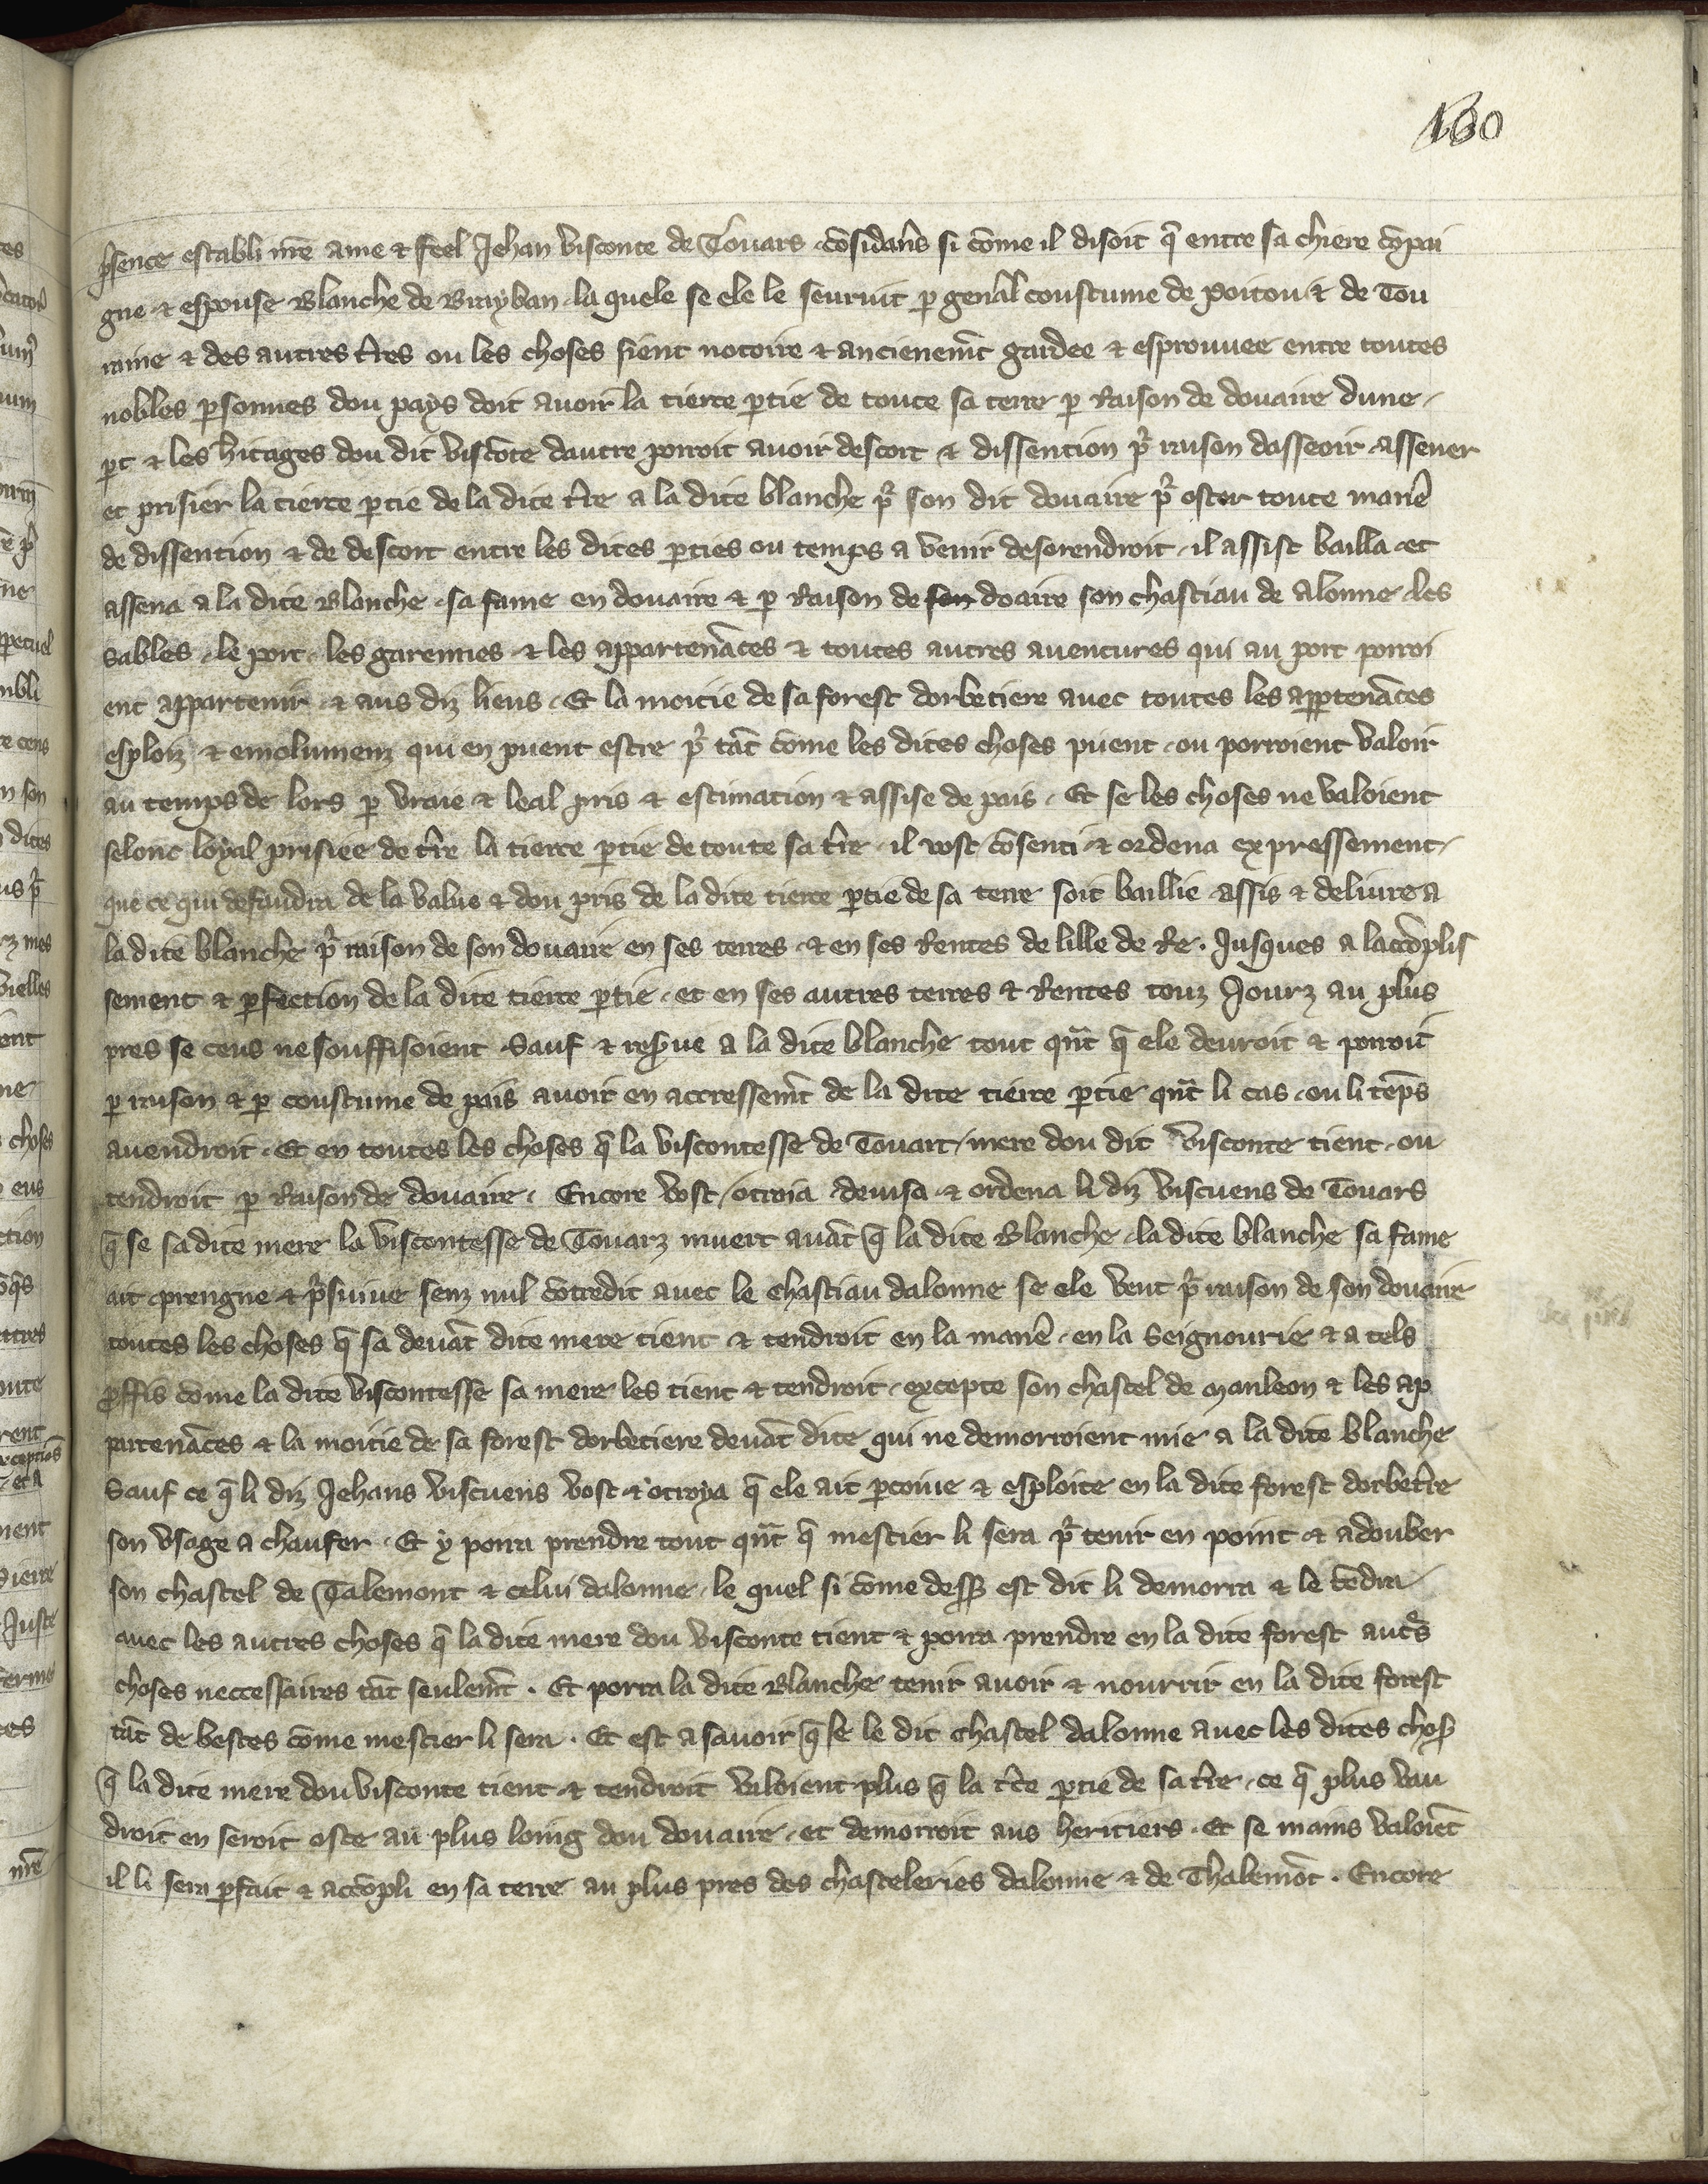 130
p̾sence establi nr̄e ame ⁊ feel Jehan visconte de Touars cōsidanˢ si cōme il disoit q̄ entre sa chiere cōpai
gne ⁊ espouse Blanche de Brayban la quele se ele le seurvit ꝑ gen̄al coustume de Poitou ⁊ de Tou
raine ⁊ des autres t̄res ou les choses sient notoire ⁊ ancienem̄t gardee ⁊ esprouuee entre toutes
nobles ꝑsonnes dou pays doit auoir la tierce ꝑtie de toute sa terre ꝑ Raison de douaire dune
ꝑt ⁊ les h̄itages dou dit viscōte dautre porroit auoir descort ⁊ dissention pͬ raison dasseoir assener
et prisier la tierce ꝑtie de la dite t̄re a la dite blanche pͬ son dit douaire pͬ oster toute manē
de dissention ⁊ de descort entre les dites ꝑties ou temps a venir desorendroit il assist bailla et
assena a la dite Blanche sa fame en douaire ⁊ ꝑ Raison de son doaire son chastiau de Alonne les
Sables le port les garennes ⁊ les appartenāces ⁊ toutes autres auentures qui au port porroi
ent appartenir ⁊ aus diz lieus Et la moitie de sa forest dorbetiere auec toutes les apꝑtenāces
esploiz ⁊ emolumenz qui en puent estre pͬ tāt cōme les dites choses puent ou porroient valoir
au temps de lors ꝑ vraie ⁊ leal pris ⁊ estimation ⁊ assise de pais Et se les choses ne valoient
selonc loyal prisiee de t̄re la tierce ꝑtie de toute sa t̄re il vost cōsenti ⁊ ordena expressement
que ce qui defaudra de la value ⁊ dou pris de la dite tierce ꝑtie de sa terre soit baillie assis ⁊ deliure a
la dite blanche pͬ raison de son douaire en ses terres ⁊ en ses Rentes de lille de Re. Jusques a lacōplis
sement ⁊ ꝑfection de la dite tierce ꝑtie et en ses autres terres ⁊ Rentes touz Jourz au plus
pres se ceus ne souffisoient Sauf ⁊ res̄ue a la dite blanche tout qn̄t q̄ ele deuroit ⁊ porroit
ꝑ raison ⁊ ꝑ coustume de pais auoir en acressem̄t de la dite tierce ꝑtie qn̄t li cas ou li tēps
auendroit Et en toutes les choses q̄ la viscontesse de Touart mere dou dit visconte tient ou
tendroit ꝑ Raison de douaire Encore vost otroia deuisa ⁊ ordena li diz viscuens de Touars
q̄ se sa dite mere la viscontesse de Touarz muert auāt q̄ la dite Blanche la dite blanche sa fame
ait prengne ⁊ p̾suiue senz nul cōtredit auec le chastiau dalonne se ele veut pͬ raison de son douaire
toutes les choses q̄ sa deuāt dite mere tient ⁊ tendroit en la manē en la Seignourie ⁊ a tels
ꝓffis cōme la dite viscontesse sa mere les tient ⁊ tendroit excepte son chastel de Mauleon ⁊ les ap
partenāces ⁊ la moitie de sa forest dorbetiere deuāt dite qui ne demorroient mie a la dite blanche
Sauf ce q̄ li diz Jehans viscuens vost ⁊ otroya q̄ ele ait ꝑcoiue ⁊ esploite en la dite forest dorbet̄re
son vsage a chaufer Et y porra prendre tout qn̄t q̄ mestier li sera pͬ tenir en point ⁊ adouber
son chastel de Talemont ⁊ celui dalonne le quel si cōme dess̄ est dit li demorra ⁊ le tēdra
auec les autres choses q̄ la dite mere dou visconte tient ⁊ porra prendre en la dite forest autͬs
choses neccessaires tāt seulem̄t. Et porra la dite Blanche tenir auoir ⁊ nourrir en la dite forest
tāt de bestes cōme mestier li sera. Et est a sauoir q̄ se le dit chastel dalonne auec les dites chos̄
q̄ la dite mere dou visconte tient ⁊ tendroit valoient plus q̄ la t̄ce ꝑtie de sa t̄re ce q̄ plus vau
droit en seroit oste au plus loing dou douaire et demorroit aus heritiers Et se mains valoiēt
il li sera ꝑfait ⁊ acōpli en sa terre au plus pres des chasteleries dalonne ⁊ de Thalemōt. Encore